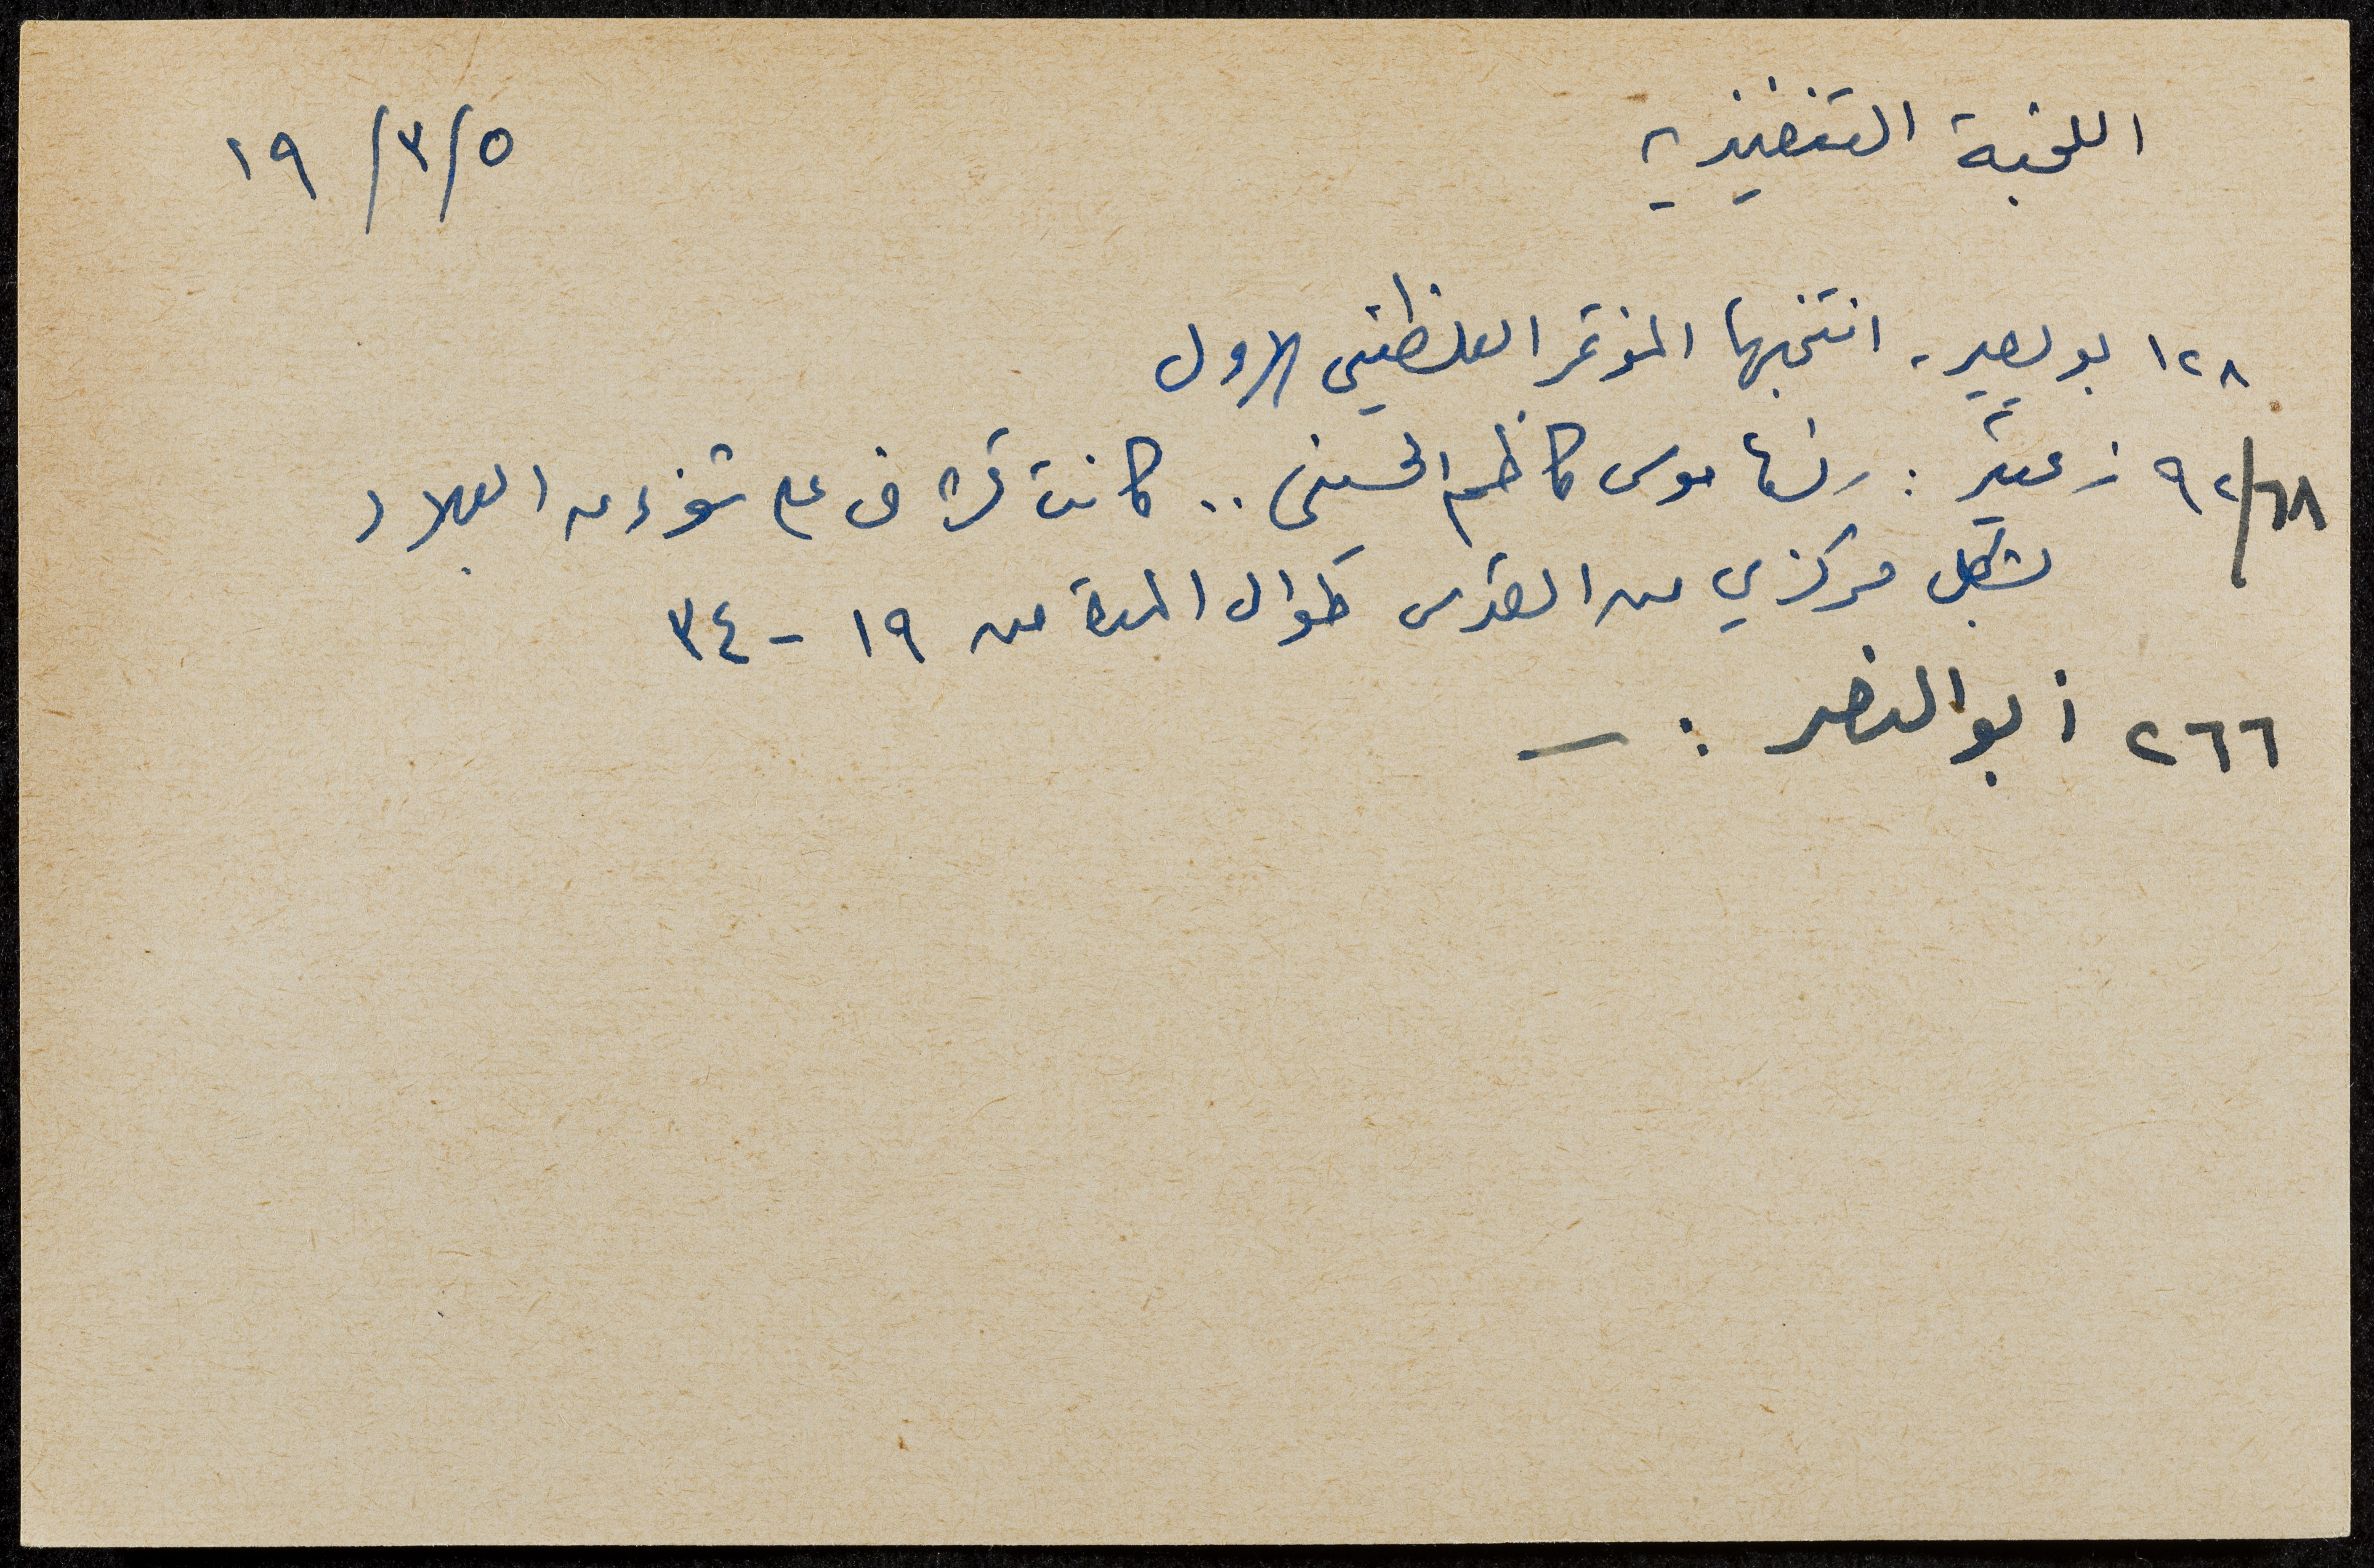 اللجنة التنفيذية ١٩/٣/٥
١٢٨ بويصير، انتخبها المؤتمر الفلسطيني الاول
٦٨/٩٢ زعيتر: رئسها موسى كاظم الحسيني .. كانت تشرف على شؤون البلاد
بشكل مركزي من القدس طوال المدة من ١٩ - ٣٤
٢٦٦ أبو النصر : —